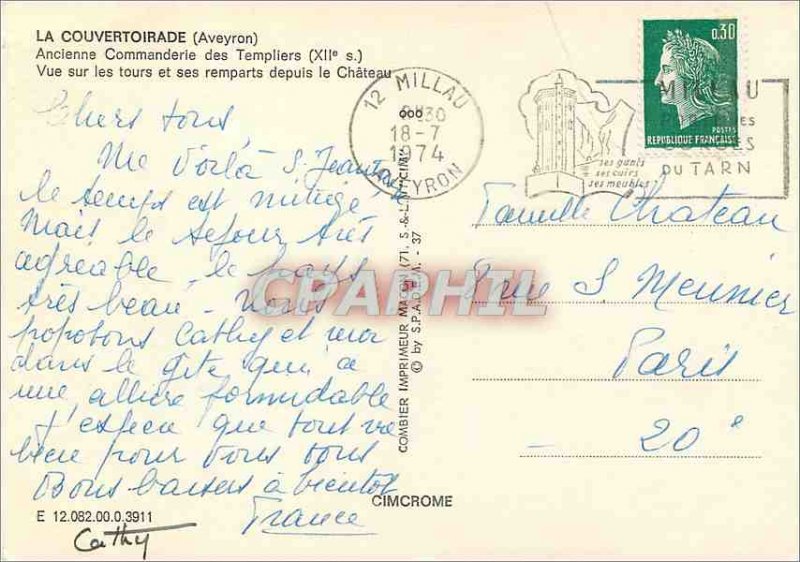 LA COUVERTOIRADE (Aveyron)
Ancienne Commanderie des Templiers (XIIe s.)
Vue sur les tours et ses remparts depuis le Château
Chers tous,
Me Voilà S. Jeantou
le temps est mitigé
Mais le séjour très
agréable, le pays
très beau - Nous
popotons Cathy et moi
dans le gîte qui a
une allure formidable
J'espère que tout va
bien pour vous tous
Bons baisers à bientot
France
Cathy
E 12.082.00.0.3911
CIMCROME
COMBIER IMPRIMEUR MACON (71. S.-&-L.) "CIM"
© by S.P.A.D.E.M. - 37
12 MILLAU
18-7
1974
AVEYRON
ses gants
ses cuirs
ses meubles
MILLAU
GORGES
DU TARN
0,30
POSTES
REPUBLIQUE FRANÇAISE
Famille Chateau
Rue S Meunier
Paris
20e
CPARPHIL